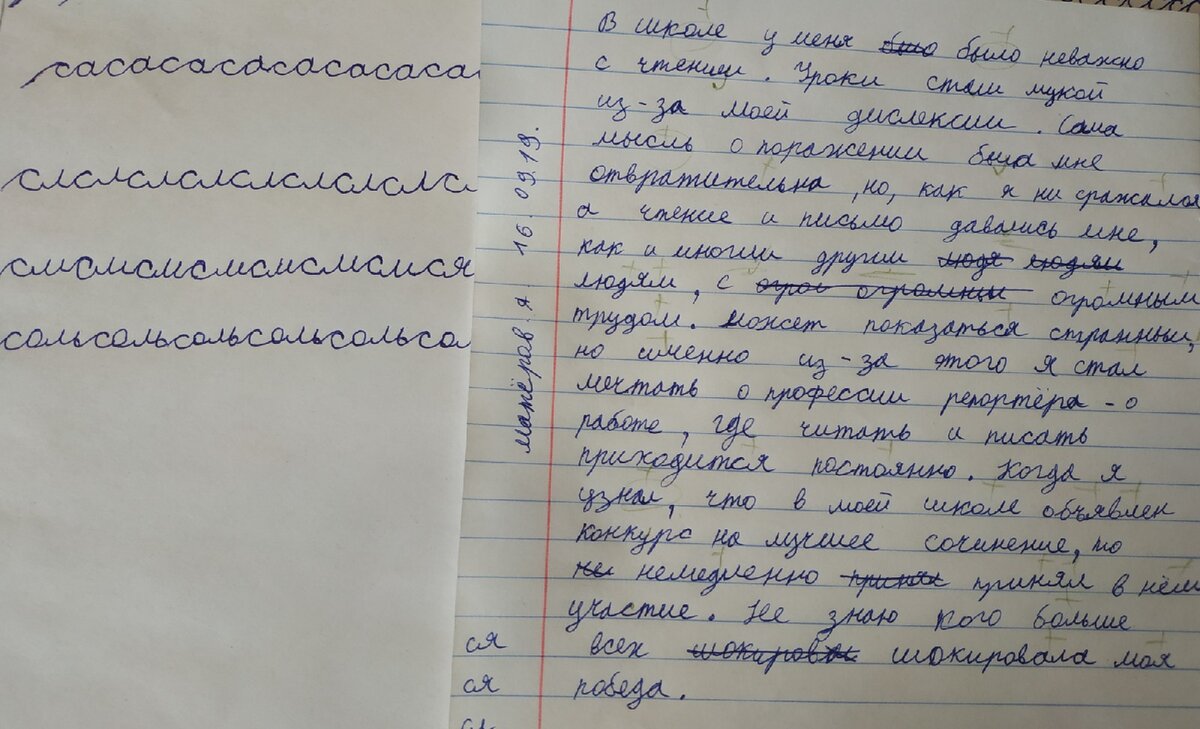 сасасасасасасаса
слслслслслслслслс
смсмсмсмсмсмсмсмся
сольсольсольсольсольсо
Матёров Я. 16.09.19.
В школе у меня было было неважно
с чтением. Уроки стали мукой
из-за моей дислексии. Сама
мысль о поражении была мне
отвратительна, но, как я ни сражался
а чтение и письмо давались мне,
как и многим другим людя людям
людям, с огро огромны огромным
трудом. Может показаться странным,
но именно из-за этого я стал
мечтать о профессии репортёра - о
работе, где читать и писать
приходится постоянно. Когда я
узнал, что в моей школе объявлен
конкурс на лучшее сочинение, то
немедленно принял принял в нём
участие. Не знаю кого больше
всех шокировал шокировала моя
победа.
ся
ся